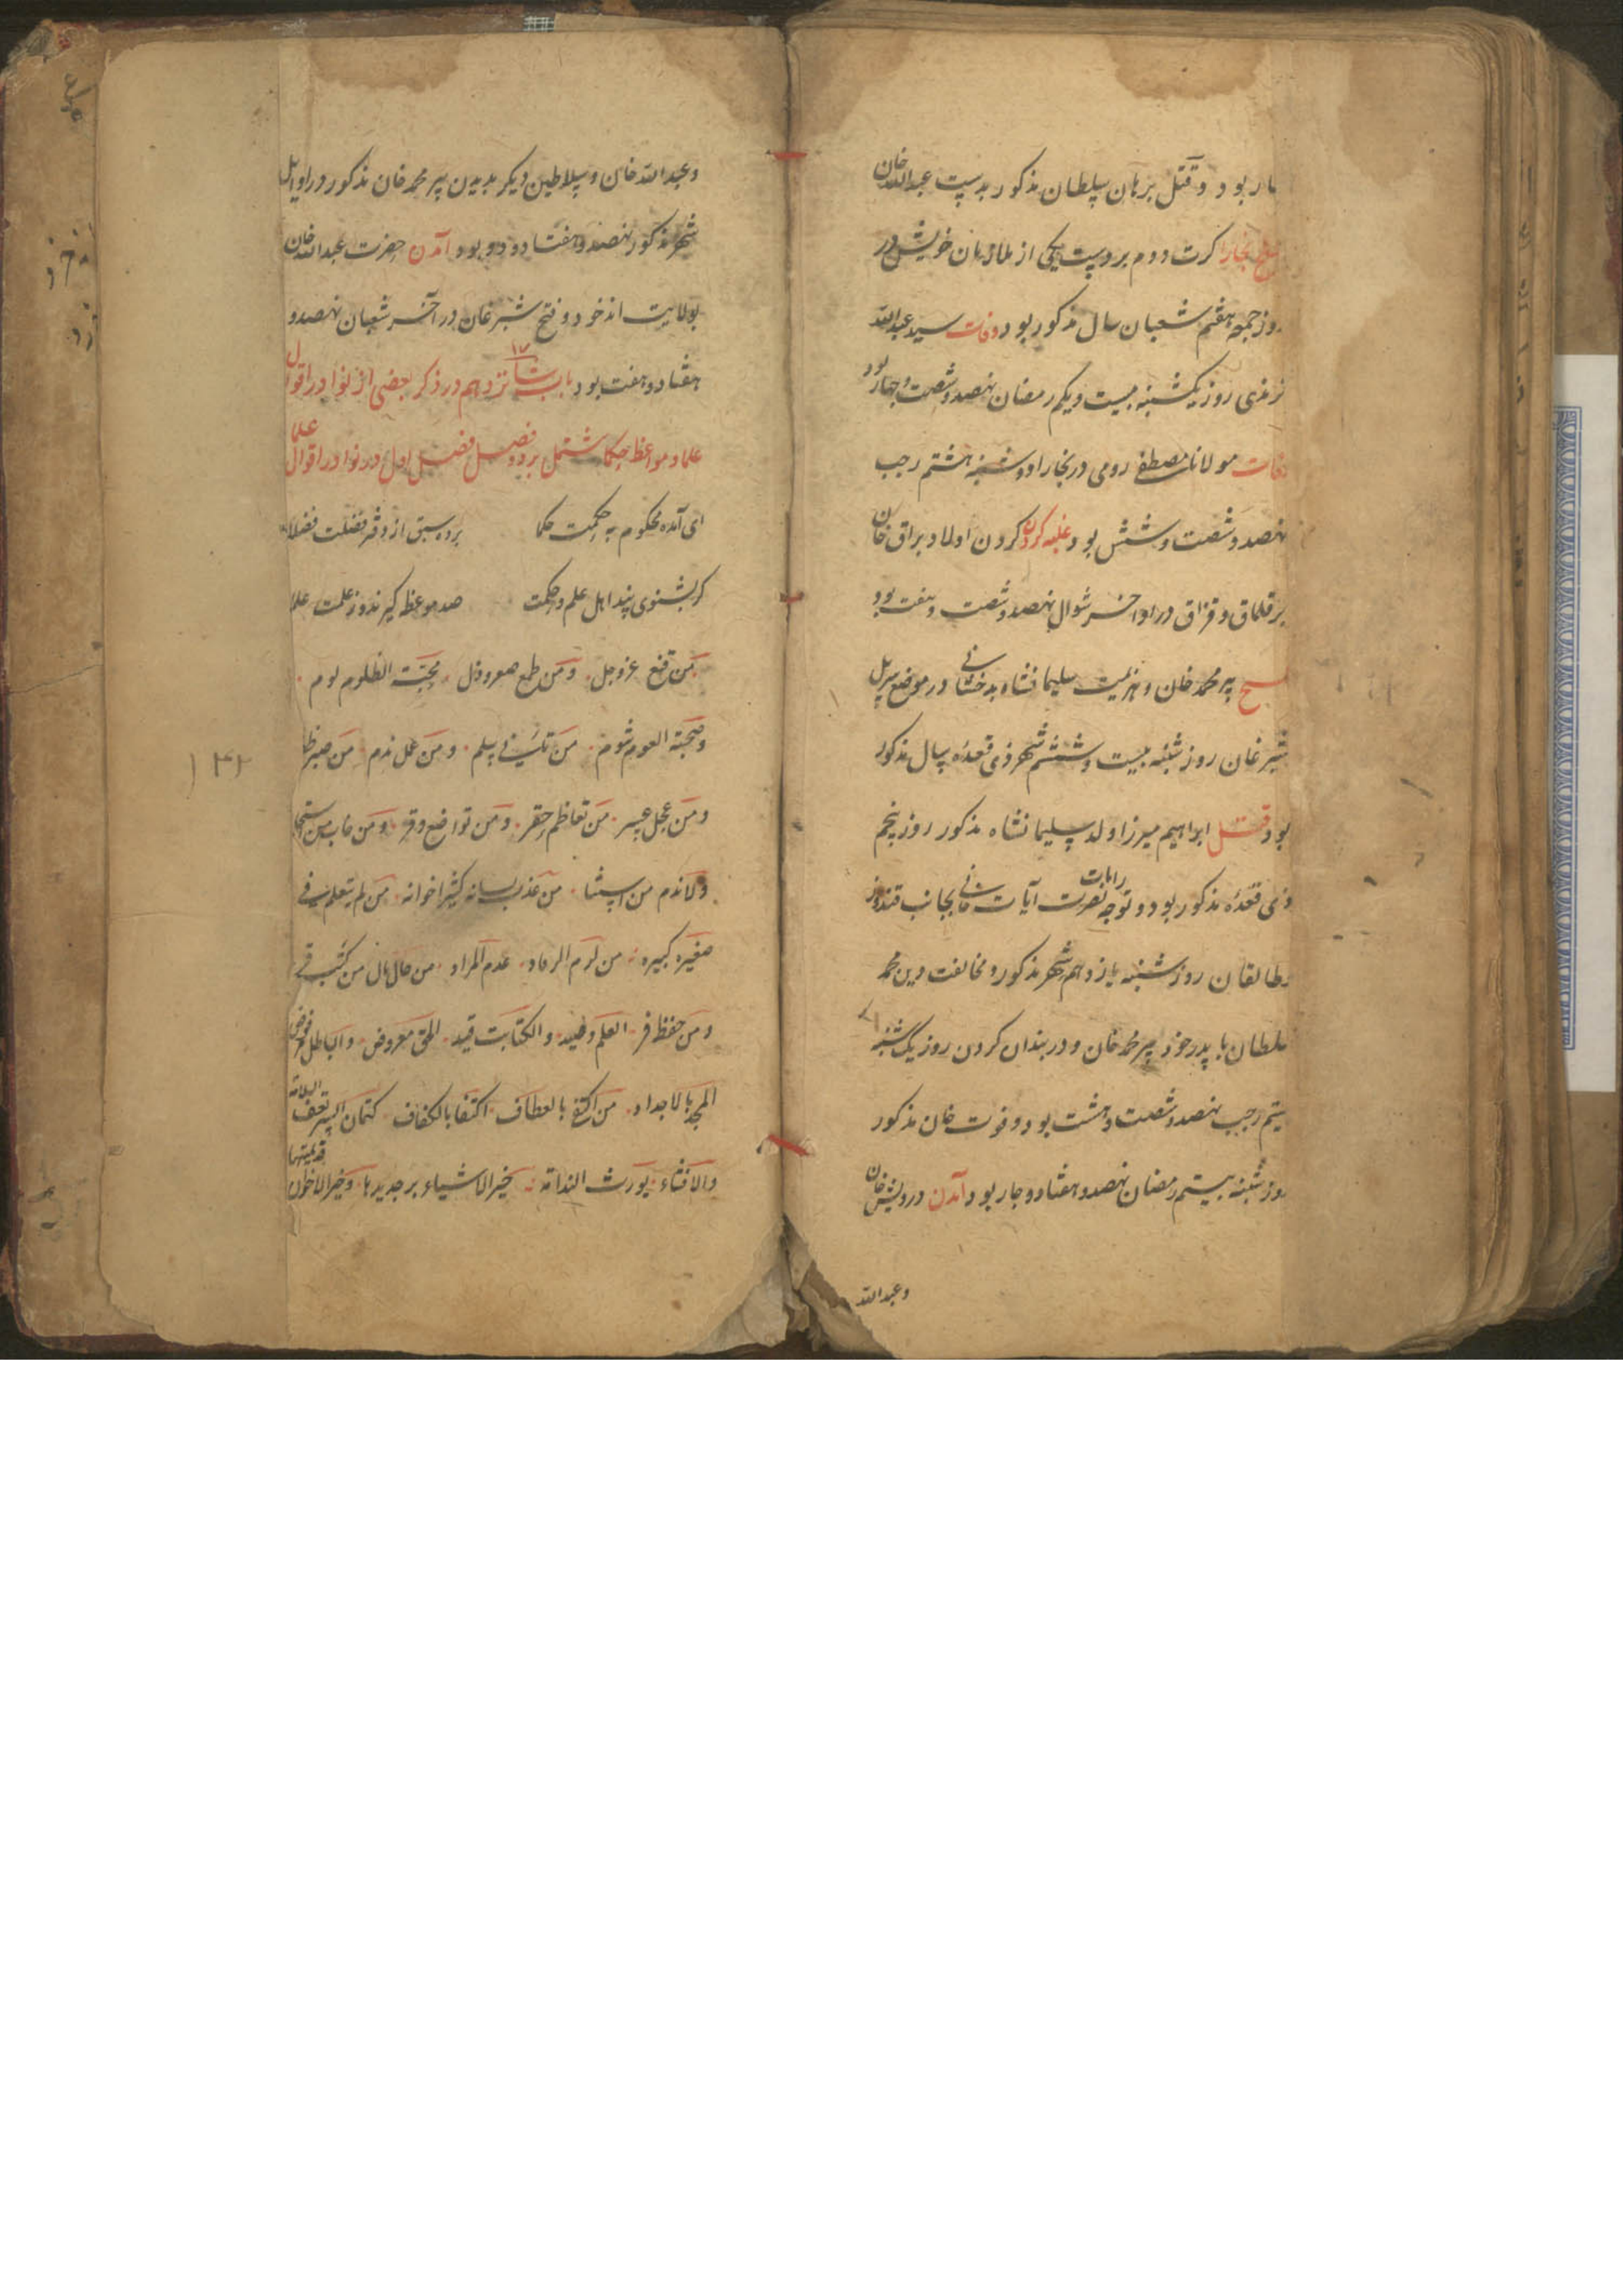 مار بود و قتل برهان سلطان مذکور بدست عبدالله خان
فتح بخارا کرت دوم بردست یکی از ملازمان خویش در
روز جمعه هفتم شعبان سال مذکور بود وفات سید عبدالله
ترمزی روز یکشنبه بیست و یکم رمضان نهصد و شصت و چهار بود
وفات مولانا مصطفی رومی در بخارا دوشنبه هشتم رجب
نهصد و شصت و شش بود غلبه کردن کردن اولاد براق خان
بر قلماق و قزاق در اواخر شوال نهصد و شصت و هفت بود
فتح پیر محمد خان و هزیمت سلیمانشاه بدخشانی در موضع سرپل
شبرغان روز شنبه بیست و ششم شهر ذی قعده سال مذکور
بود قتل ابراهیم میرزا ولد سلیمانشاه مذکور روز پنجم
ذی قعده مذکور بود و توجه رایات نصرت آیات خانی بجانب قندوز
و طالقان روز شنبه یازدهم شهر مذکور و مخالفت دین محمد
سلطان با پدر خود پیر محمد خان و در بندان کردن روز یکشنبه
بیستم رجب نهصد و شصت و هشت بود و فوت خان مذکور
روز شنبه بیستم رمضان نهصد و هفتاد و چار بود آمدن درویش خان
و عبدالله
و عبدالله خان و سلاطین دیگر بدیدن پیر محمد خان مذکور در اوایل
شهر مذکور نهصد و هفتاد و دو بود آمدن حضرت عبدالله خان
بولایت اندخود و فتح شبرغان در آخر شعبان نهصد و
هفتاد و هفت بود باب شانزدهم در ذکر بعضی از نوادر اقوال
۱۷
علما و مواعظ حکما مشتمل بر دو فصل فصل اول در نوادر اقوال علما
ای آمده محکوم به حکمت حکما برده سبق از دفتر فضلت فضلا
گر بشنوی پند اهل علم و حکمت صد موعظه گیرند ز علمت علما
من قنع عز و جل و من طمع صعر و ذل محبة الظلوم لوم
و صحبة العوم شوم من تانی سلم و من عجل ندم من صبر ظفر
و من عجل عسر من تعاظم حقر و من تواضع وقر و من خاب من استخار
و لا ندم من استشار من عذب لسانه کثر اخوانه من لم یتعلم فی
صغره کبیره من لزم الرقاد عدم المراد من جال نال من کتب قر
و من حفظ فر العلم و الکتابت قید الحق معروض و الباطل مرفوض
المجد بالاجداد من اکتفی بالعطاف اکتفا بالکفاف کتمان السر یعقب السلامة
والافشاء یورث الندامة خیر الاشیاء بر جدیدها و خیر الاخوان قدیمتها
۱۴۲